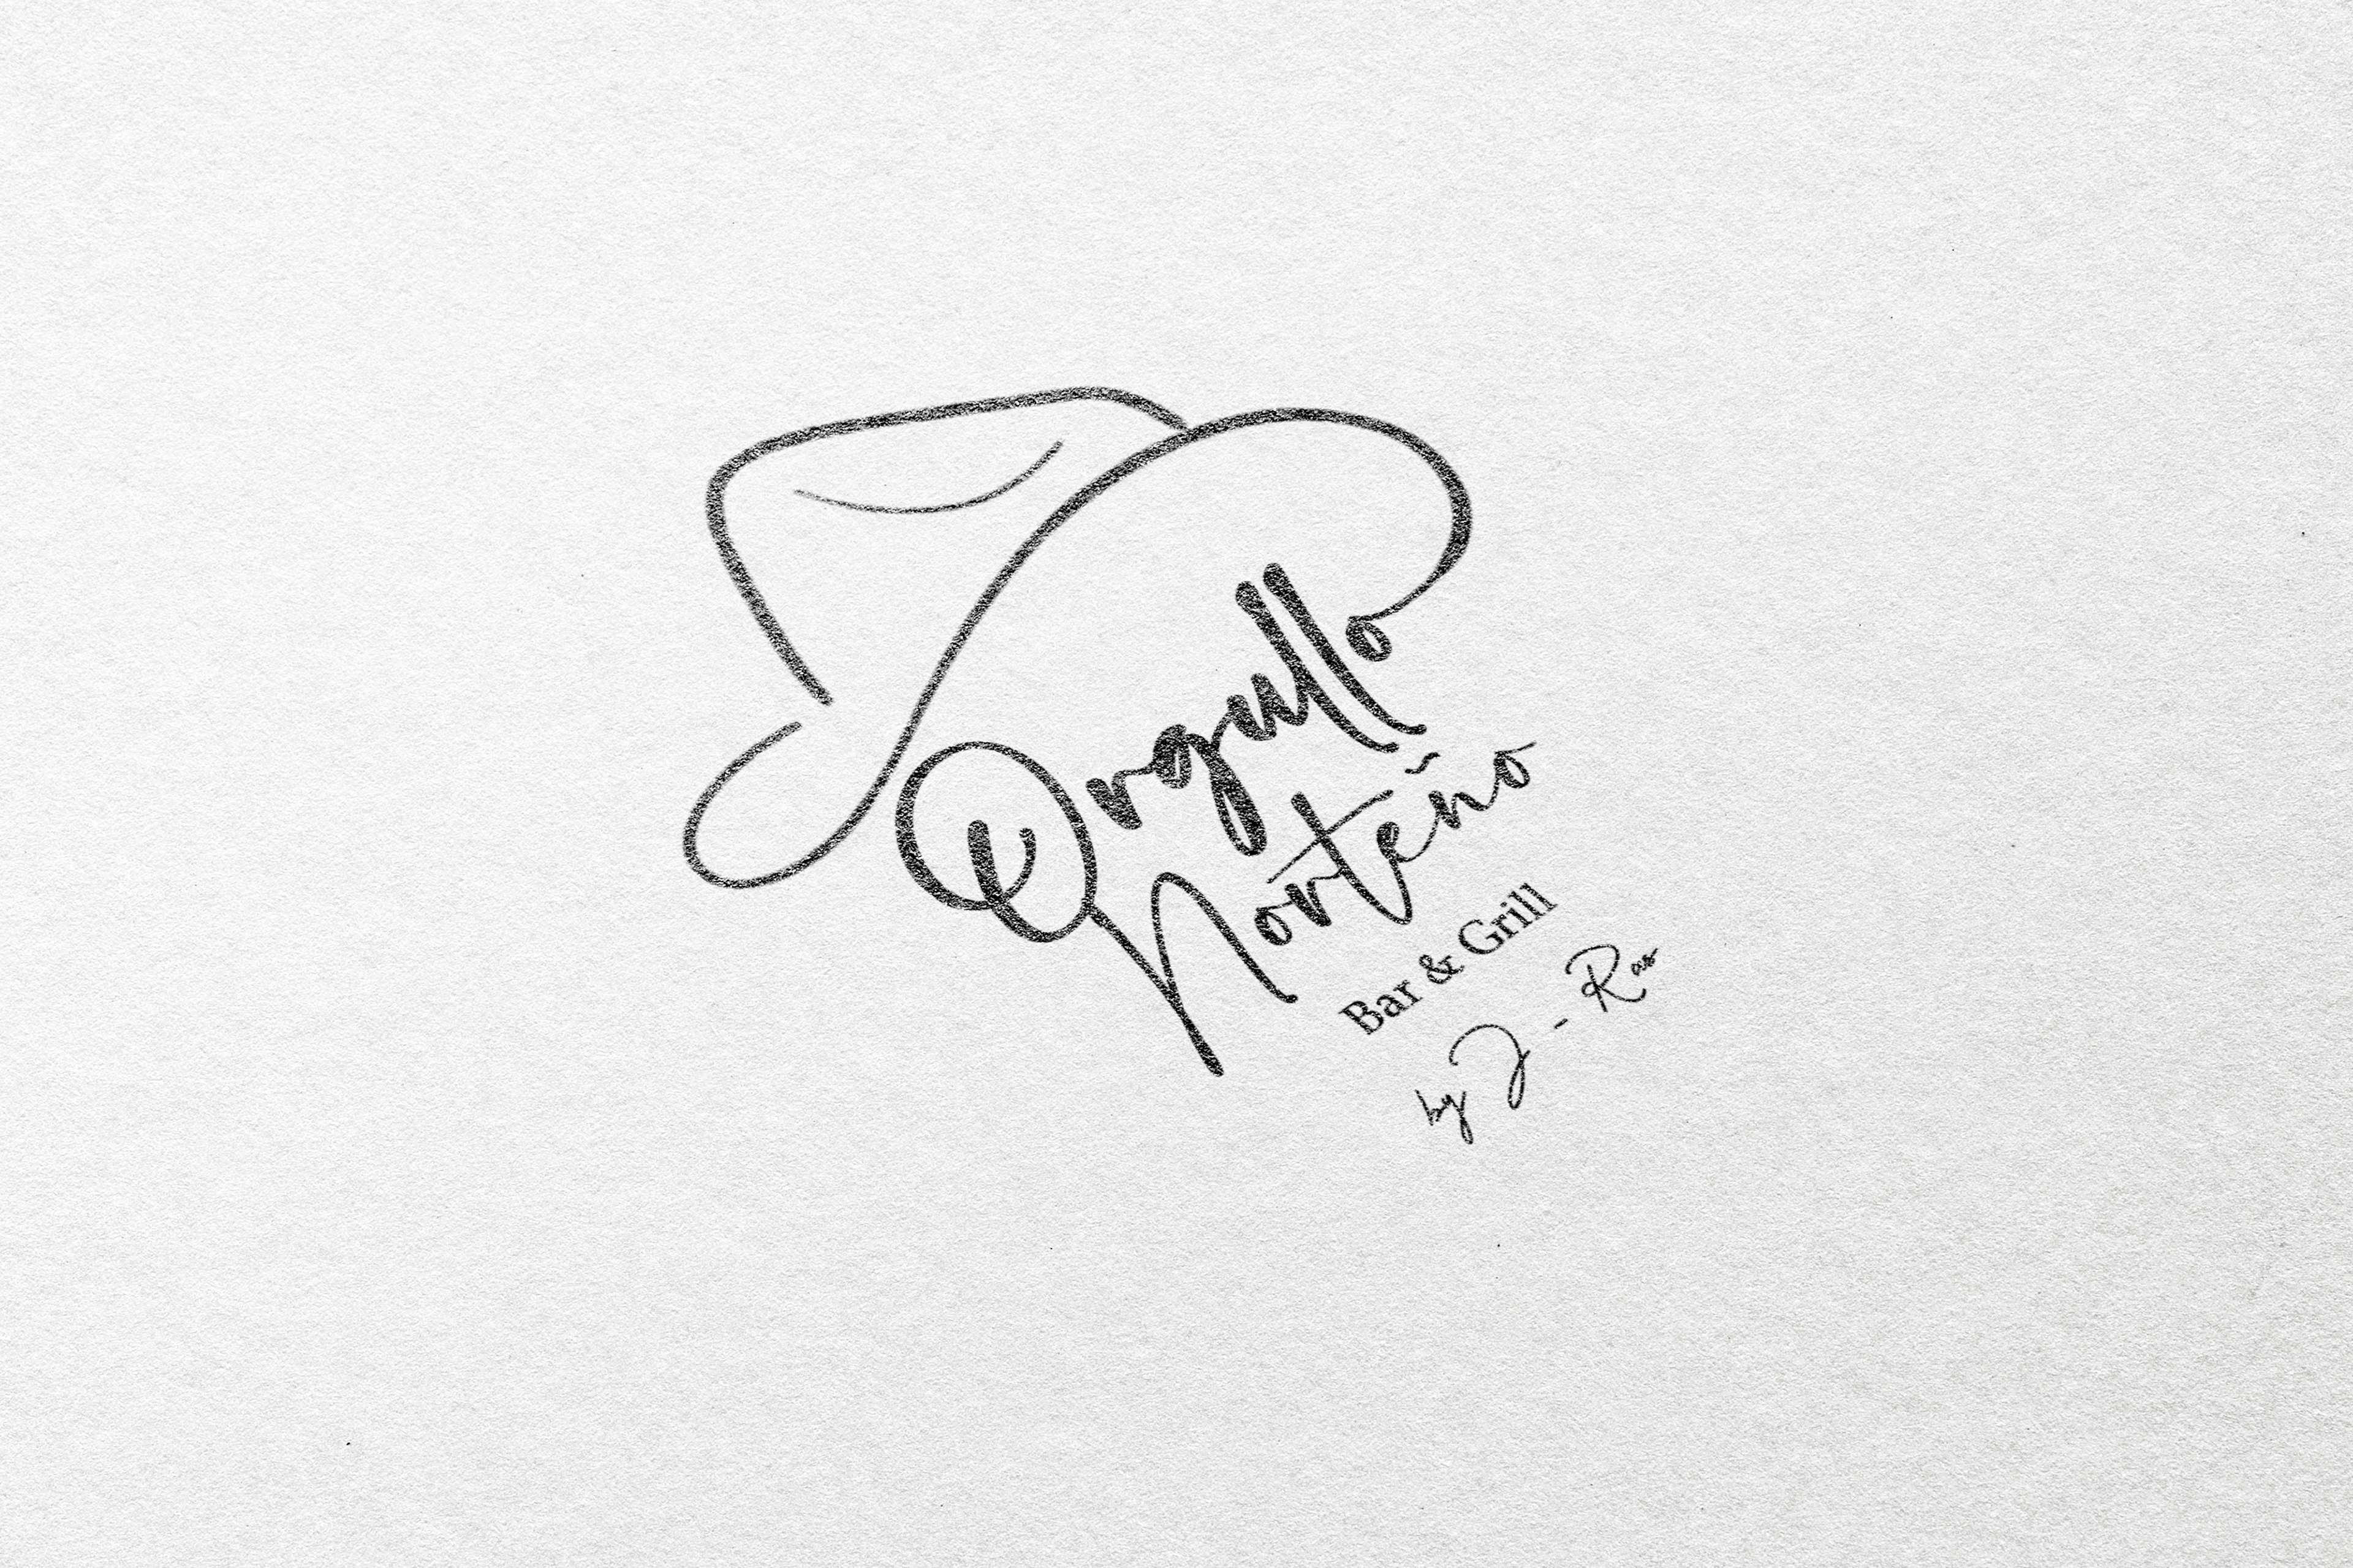 Orgullo
Norteño
Bar & Grill
by J - Ras